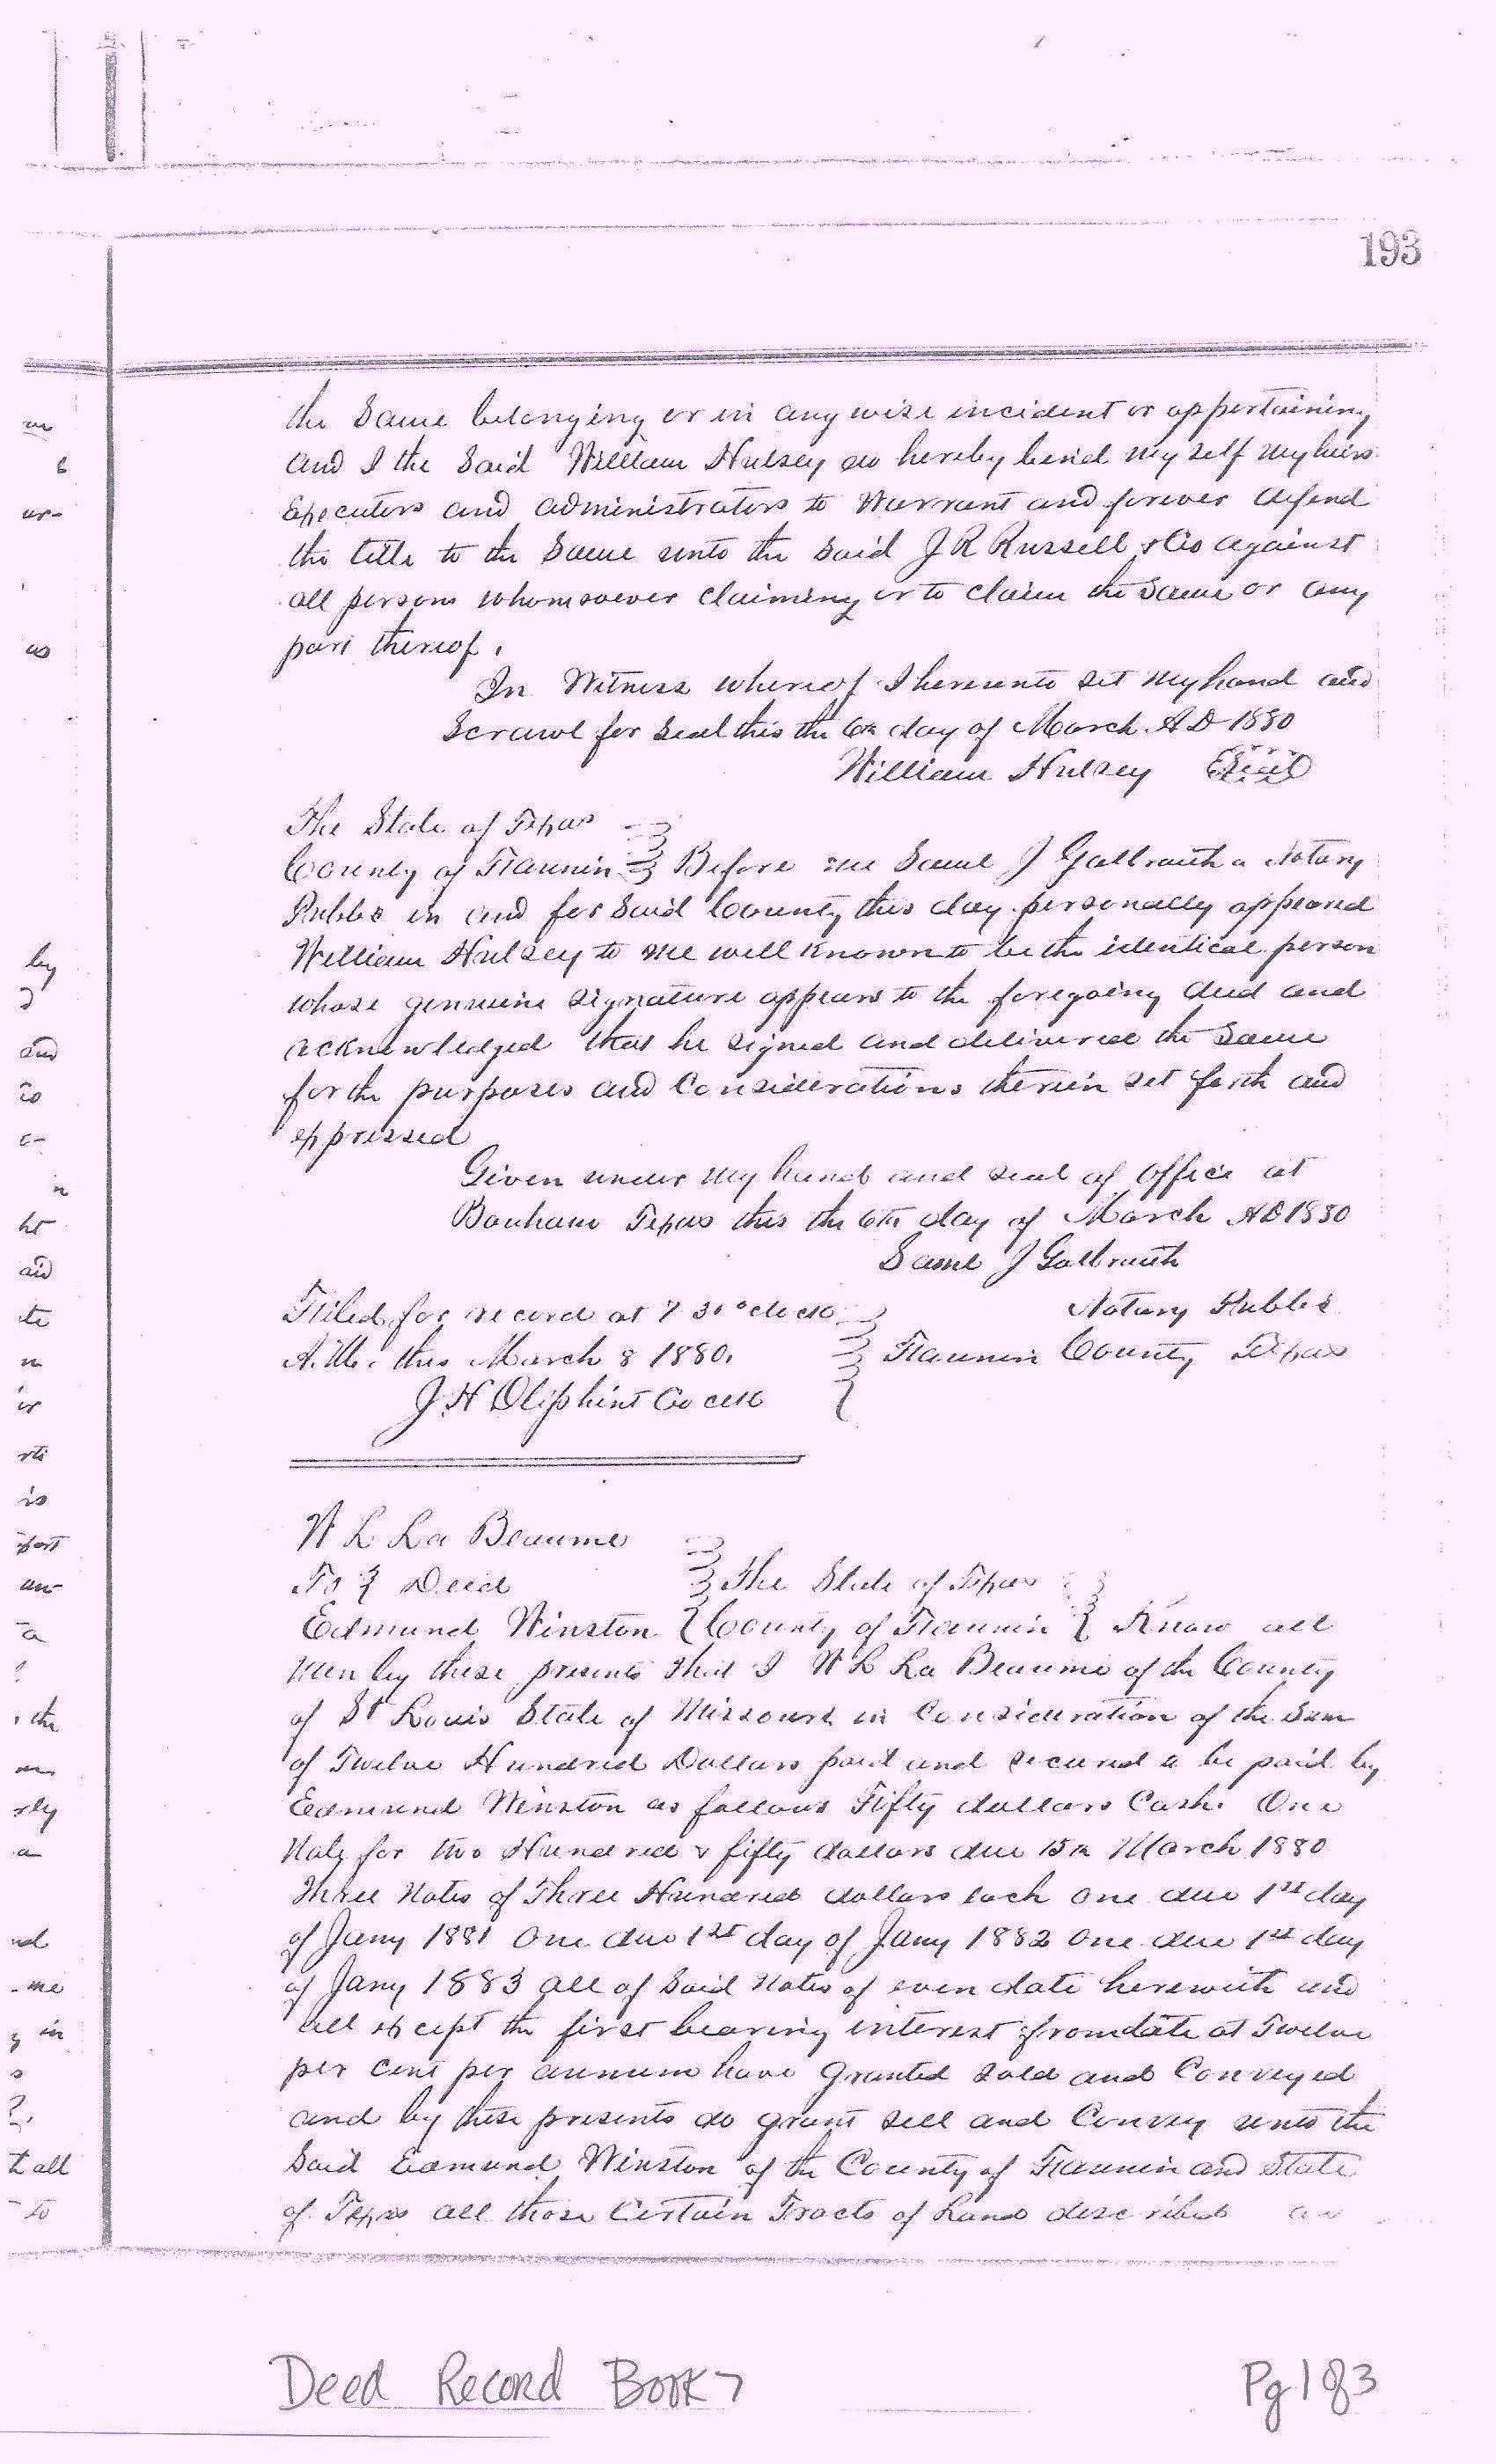 193
the Same belonging or in any wise incident or appertaining
and I the Said William Hulsey do hereby bind my self my heirs
Executors and administrators to Warrant and forever defend
the title to the Same unto the Said J R Russell & Co against
all persons whomsoever claiming or to claim the Same or any
part thereof.
In Witness whereof I hereunto set my hand and
Scrawl for Seal this the 6th day of March A D 1880
William Hulsey Seal
The State of Texas
County of Fannin Before me Saml J Galbraith a Notary
Public in and for Said County this day personally appeared
William Hulsey to me well known to be the identical person
whose genuine signature appears to the foregoing deed and
acknowledged that he signed and delivered the Same
for the purposes and Considerations therein set forth and
expressed
Given under my hand and seal of office at
Bonham Texas this the 6th day of March AD 1880
Saml J Galbraith
Filed for record at 7 30 oclock Notary Public
A.M. this March 8 1880. Fannin County Texas
J. H Oliphint Co Clk
W L La Beaume
To } Deed The State of Texas
Edmund Winston { County of Fannin } Know all
men by these presents that I W L La Beaume of the County
of St Louis State of Missouri in Consideration of the Sum
of Twelve Hundred Dollars paid and secured to be paid by
Edmund Winston as follows Fifty dollars Cash. One
Note for two Hundred & fifty dollars due 15th March 1880
Three Notes of Three Hundred dollars each one due 1st day
of Jany 1881 One due 1st day of Jany 1882 one due 1st day
of Jany 1883 all of Said Notes of even date herewith and
all except the first bearing interest from date at Twelve
per cent per annum have granted sold and Conveyed
and by these presents do grant sell and Convey unto the
Said Edmund Winston of the County of Fannin and State
of Texas all those Certain Tracts of Land described as
by
and
as
port
the
a
rly
me
in
t all
to
Deed Record Book 7
Pg 1 of 3